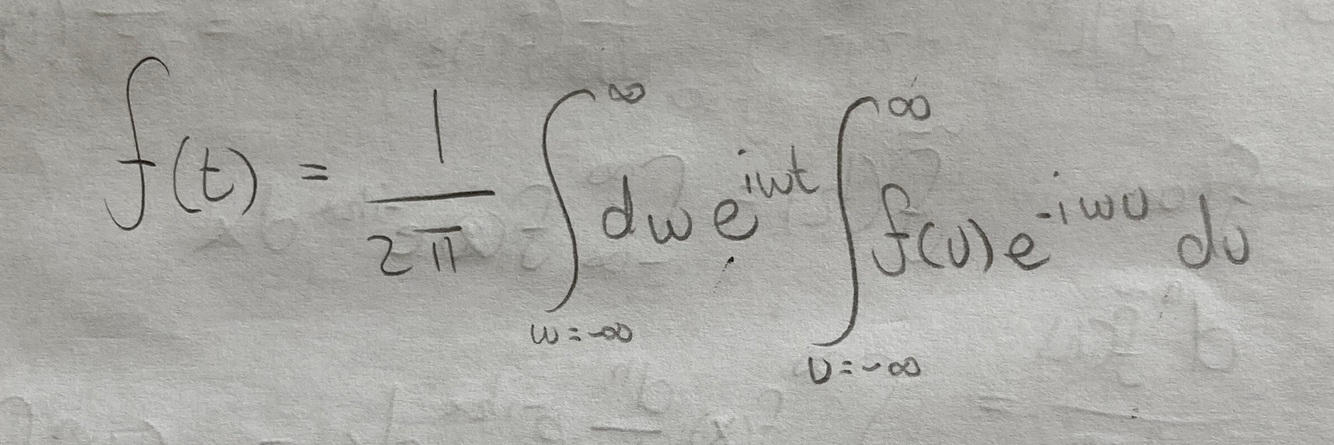 f(t) = \frac{1}{2\pi} \int_{\omega=-\infty}^{\infty} d\omega e^{i\omega t} \int_{υ=-\infty}^{\infty} f(υ) e^{-i\omega υ} dυ